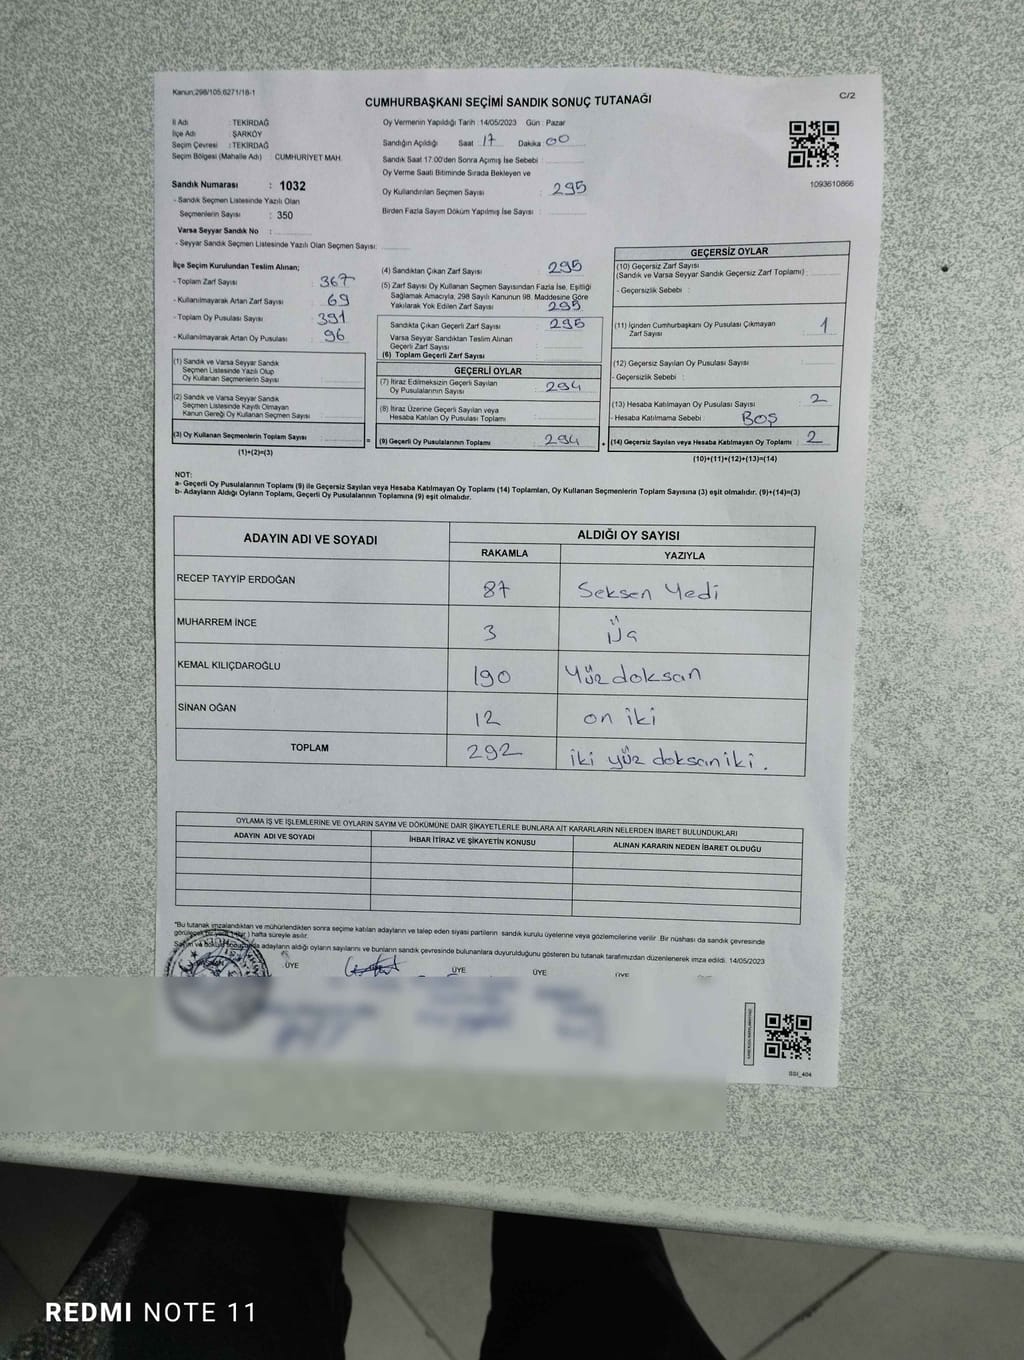 Kanun;298/105;6271/18-1
C/2
CUMHURBAŞKANI SEÇİMİ SANDIK SONUÇ TUTANAĞI
İl Adı : TEKİRDAĞ
İlçe Adı : ŞARKÖY
Seçim Çevresi : TEKİRDAĞ
Seçim Bölgesi (Mahalle Adı) : CUMHURİYET MAH.
Sandık Numarası : 1032
- Sandık Seçmen Listesinde Yazılı Olan
Seçmenlerin Sayısı : 350
Varsa Seyyar Sandık No :
- Seyyar Sandık Seçmen Listesinde Yazılı Olan Seçmen Sayısı:
Oy Vermenin Yapıldığı Tarih :14/05/2023 Gün : Pazar
Sandığın Açıldığı Saat :17 Dakika :00
Sandık Saat 17:00'den Sonra Açımış İse Sebebi :
Oy Verme Saati Bitiminde Sırada Bekleyen ve
Oy Kullandırılan Seçmen Sayısı : 295
Birden Fazla Sayım Döküm Yapılmış İse Sayısı :
1093610866
İlçe Seçim Kurulundan Teslim Alınan;
- Toplam Zarf Sayısı : 367
- Kullanılmayarak Artan Zarf Sayısı : 69
- Toplam Oy Pusulası Sayısı : 391
- Kullanılmayarak Artan Oy Pusulası : 96
(1) Sandık ve Varsa Seyyar Sandık
Seçmen Listesinde Yazılı Olup
Oy Kullanan Seçmenlerin Sayısı :
(2) Sandık ve Varsa Seyyar Sandık
Seçmen Listesinde Kayıtlı Olmayan
Kanun Gereği Oy Kullanan Seçmen Sayısı :
(3) Oy Kullanan Seçmenlerin Toplam Sayısı :
(1)+(2)=(3)
(4) Sandıktan Çıkan Zarf Sayısı : 295
(5) Zarf Sayısı Oy Kullanan Seçmen Sayısından Fazla İse, Eşitliği
Sağlamak Amacıyla, 298 Sayılı Kanunun 98. Maddesine Göre
Yakılarak Yok Edilen Zarf Sayısı : 295
Sandıkta Çıkan Geçerli Zarf Sayısı : 295
Varsa Seyyar Sandıktan Teslim Alınan
Geçerli Zarf Sayısı :
(6) Toplam Geçerli Zarf Sayısı :
GEÇERLİ OYLAR
(7) İtiraz Edilmeksizin Geçerli Sayılan
Oy Pusulalarının Sayısı : 294
(8) İtiraz Üzerine Geçerli Sayılan veya
Hesaba Katılan Oy Pusulası Toplamı :
= (9) Geçerli Oy Pusulalarının Toplamı : 294
GEÇERSİZ OYLAR
(10) Geçersiz Zarf Sayısı
(Sandık ve Varsa Seyyar Sandık Geçersiz Zarf Toplamı) :
- Geçersizlik Sebebi :
(11) İçinden Cumhurbaşkanı Oy Pusulası Çıkmayan
Zarf Sayısı : 1
(12) Geçersiz Sayılan Oy Pusulası Sayısı :
- Geçersizlik Sebebi :
(13) Hesaba Katılmayan Oy Pusulası Sayısı : 2
- Hesaba Katılmama Sebebi : BOŞ
+ (14) Geçersiz Sayılan veya Hesaba Katılmayan Oy Toplamı : 2
(10)+(11)+(12)+(13)=(14)
NOT:
a- Geçerli Oy Pusulalarının Toplamı (9) ile Geçersiz Sayılan veya Hesaba Katılmayan Oy Toplamı (14) Toplamları, Oy Kullanan Seçmenlerin Toplam Sayısına (3) eşit olmalıdır. (9)+(14)=(3)
b- Adayların Aldığı Oyların Toplamı, Geçerli Oy Pusulalarının Toplamına (9) eşit olmalıdır.
ADAYIN ADI VE SOYADI ALDIĞI OY SAYISI
RAKAMLA YAZIYLA
RECEP TAYYİP ERDOĞAN 87 Seksen Yedi
MUHARREM İNCE 3 Üç
KEMAL KILIÇDAROĞLU 190 Yüz doksan
SİNAN OĞAN 12 on iki
TOPLAM 292 iki yüz doksan iki.
OYLAMA İŞ VE İŞLEMLERİNE VE OYLARIN SAYIM VE DÖKÜMÜNE DAİR ŞİKAYETLERLE BUNLARA AİT KARARLARIN NELERDEN İBARET BULUNDUKLARI
ADAYIN ADI VE SOYADI İHBAR İTİRAZ VE ŞİKAYETİN KONUSU ALINAN KARARIN NEDEN İBARET OLDUĞU
"Bu tutanak imzalandıktan ve mühürlendikten sonra seçime katılan adayların ve talep eden siyasi partilerin sandık kurulu üyelerine veya gözlemcilerine verilir .Bir nüshası da sandık çevresinde
) hafta süreyle asılır.
adayların aldığı oyların sayılarını ve bunların sandık çevresinde bulunanlara duyurulduğunu gösteren bu tutanak tarafımızdan düzenlenerek imza edildi. 14/05/2023
ÜYE ÜYE ÜYE ÜYE
SSİ_404
REDMI NOTE 11